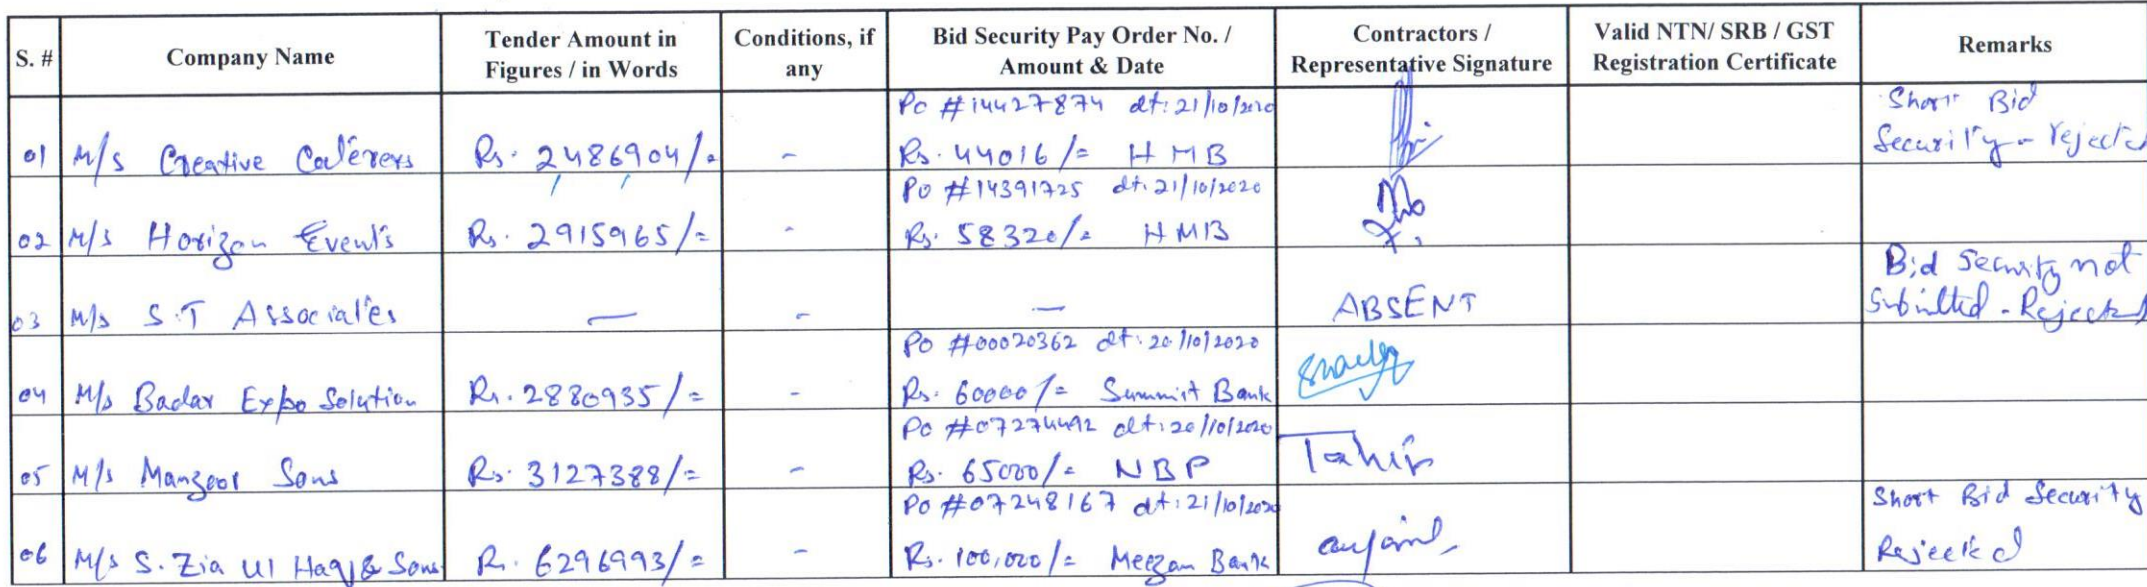 S. # Company Name Tender Amount in Figures / in Words Conditions, if any Bid Security Pay Order No. / Amount & Date Contractors / Representative Signature Valid NTN/ SRB / GST Registration Certificate Remarks
01 M/s Creative Caterers Rs. 2486904/= - Po #14427874 dt: 21/10/2020 Rs. 44016/= HMB Short Bid Security - rejected
02 M/s Horizon Events Rs. 2915965/= - Po #14391725 dt: 21/10/2020 Rs. 58320/= HMB
03 M/s S.T Associates — - — ABSENT Bid Security not Submitted - Rejected
04 M/s Badar Expo Solution Rs. 2880935/= - Po #00020362 dt: 20/10/2020 Rs. 60000/= Summit Bank
05 M/s Manzoor Sons Rs. 3127388/= - Po #07274492 dt: 20/10/2020 Rs. 65000/= NBP Tahir
06 M/s S. Zia Ul Haq & Sons R. 6296993/= - Po #07248167 dt: 21/10/2020 Rs. 100,000/= Meezan Bank Short Bid Security Rejected